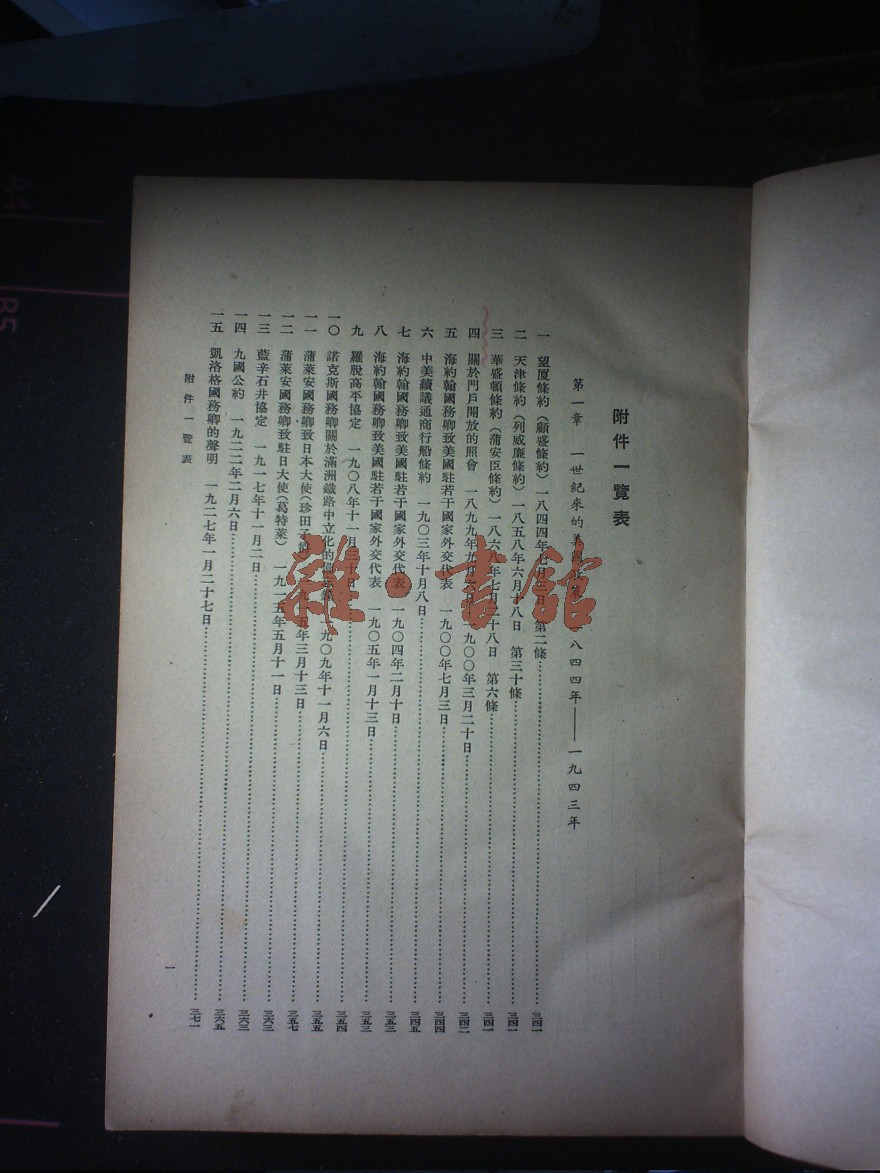 附件一覽表
第一章 一世紀來的美國政策 一八四四年——一九四三年
一 望厦條約(顧盛條約)一八四四年七月三日 第二條 三四一
二 天津條約(列威廉條約)一八五八年六月十八日 第三十條 三四一
三 華盛頓條約(蒲安臣條約)一八六八年七月二十八日 第六條 三四一
四 關於門戶開放的照會 一八九九年九月六日 一九〇〇年三月二十日 三四二
五 海約翰國務卿致美國駐若干國家外交代表 一九〇〇年七月三日 三四四
六 中美續議通商行船條約 一九〇三年十月八日 三四五
七 海約翰國務卿致美國駐若干國家外交代表 一九〇四年二月十日 三五三
八 海約翰國務卿致美國駐若干國家外交代表 一九〇五年一月十三日 三五三
九 羅脫高平協定 一九〇八年十一月三十日 三五四
一〇 諾克斯國務卿關於滿洲鐵路中立化的 一九〇九年十一月六日 三五五
一一 蒲萊安國務卿致日本大使(珍田子爵)一九一五年三月十三日 三五七
一二 蒲萊安國務卿致駐日大使(葛特萊)一九一五年五月十一日 三六三
一三 藍辛石井協定 一九一七年十一月二日 三六三
一四 九國公約 一九二二年二月六日 三六五
一五 凱洛格國務卿的聲明 一九二七年一月二十七日 三七一
附件一覽表
一
雜·書館
A4
B5